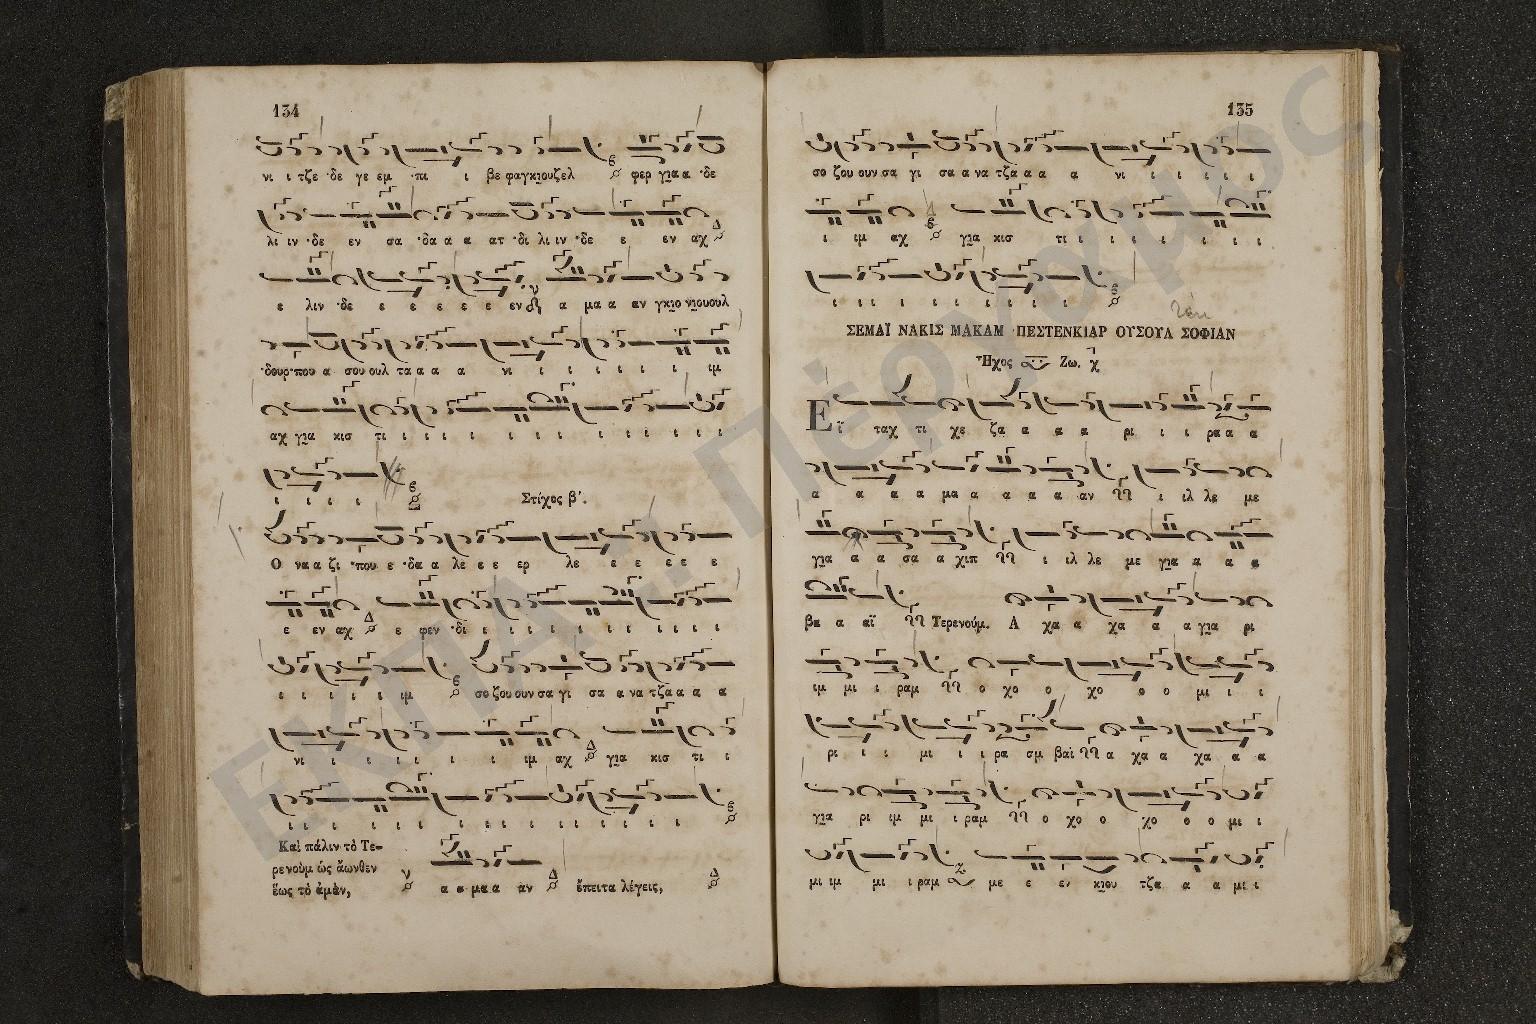 134
νι ι τζε ·δε γε εμ ·πι ι βε φαγκιουζελ φερ για α ·δε
λι ιν ·δε εν σα ·δα α α ατ ·δι λι ιν ·δε ε εν αχ
ε λιν ·δε ε ε ε ε ε εν α μα α αν γκιο νιουουλ
·δουρ·που α σου ουλ τα α α α νι ι ι ι ι ι ι ιμ
αχ για κισ τι ι ι ι ι ι ι ι ι ι ι ι ι ι
ι ι ι ι
Στίχος β΄.
Ο να α ζι ·που ε ·δα α λε ε ε ερ λε ε ε ε ε ε
ε εν αχ ε φεν ·δι ι ι ι ι ι ι ι ι ι ι ι
ι ι ι ι ι ιμ σο ζου ουν σα γι σα α να τζα α α α
νι ι ι ι ι ι ι ιμ αχ για κισ τι ι
ι ι ι ι ι ι ι ι ι ι ι ι ι ι
Καὶ πάλιν τὸ Τε-
ρενοὺμ ὡς ἄωνθεν
ἕως τὸ ἀμὲν, α α μα α αν ἔπειτα λέγεις,
135
σο ζου ουν σα γι σα α να τζα α α α νι ι ι ι ι ι
ι ιμ αχ για κισ τι ι ι ι ι ι ι ι ι
ι ι ι ι ι ι ι ι ι ι
ΣΕΜΑΪ ΝΑΚΙΣ ΜΑΚΑΜ ·ΠΕΣΤΕΝΚΙΑΡ ΟΥΣΟΥΛ ΣΟΦΙΑΝ
Ἦχος Ζω.
Εϊ ταχ τι χε ζα α α α ρι ι ι ρα α α
α α α α μα α α α α αν ι ιλ λε με
για α α σα α χιπ ι ιλ λε με για α α α
βα α αϊ Τερενούμ. Α χα α χα α α για ρι
ιμ μι ι ραμ ο χο ο χο ο ο μι ι ι
ρι ι ι μι ι ι ρα αμ βαϊ α χα α χα α α
για ρι ιμ μι ι ραμ ο χο ο χο ο ο μι ι
μι ιμ μι ι ραμ με ε εν κιου τζα α α μι ι
ΕΚΠΑ - Πέργαμος